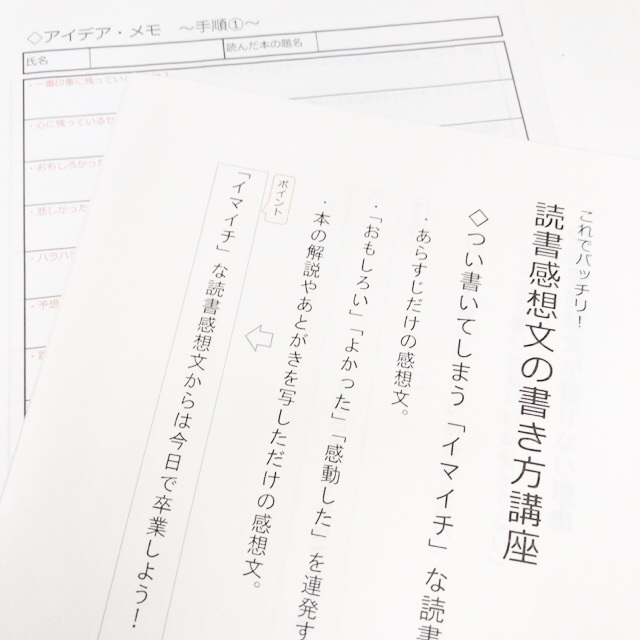 これでバッチリ！
読書感想文の書き方講座
◇つい書いてしまう「イマイチ」な読書
・あらすじだけの感想文。
・「おもしろい」「よかった」「感動した」を連発す
・本の解説やあとがきを写しただけの感想文。
ポイント
「イマイチ」な読書感想文からは今日で卒業しよう！
◇アイデア・メモ　～手順①～
氏名
読んだ本の題名
・一番印象に残っている
・心に残っているセ
・おもしろかった
・悲しかった
・ハラハラ
・予想